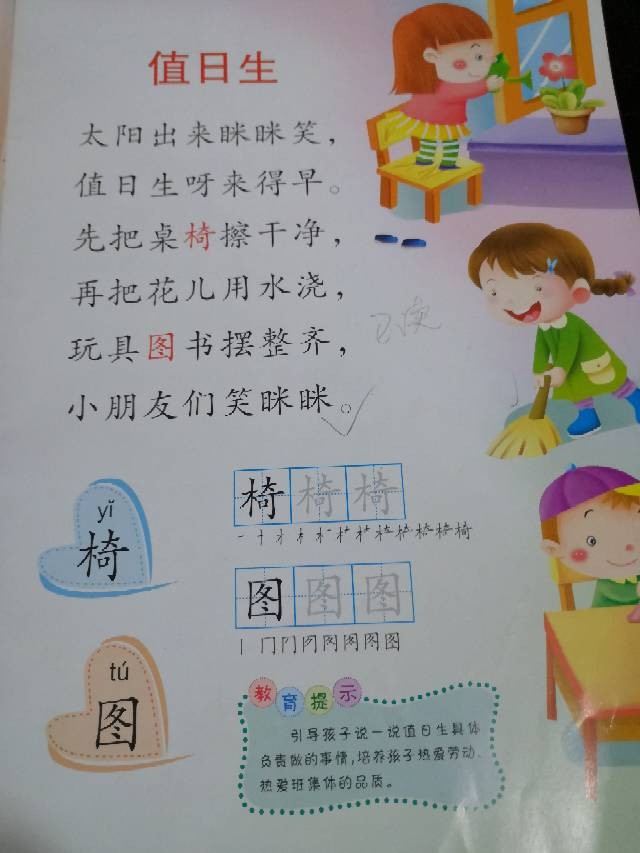 值日生
太阳出来眯眯笑，
值日生呀来得早。
先把桌椅擦干净，
再把花儿用水浇，
玩具图书摆整齐，
小朋友们笑眯眯。
已读
yǐ
椅
椅椅椅
tú
图
图图图
教育提示
引导孩子说一说值日生具体
负责做的事情，培养孩子热爱劳动、
热爱班集体的品质。